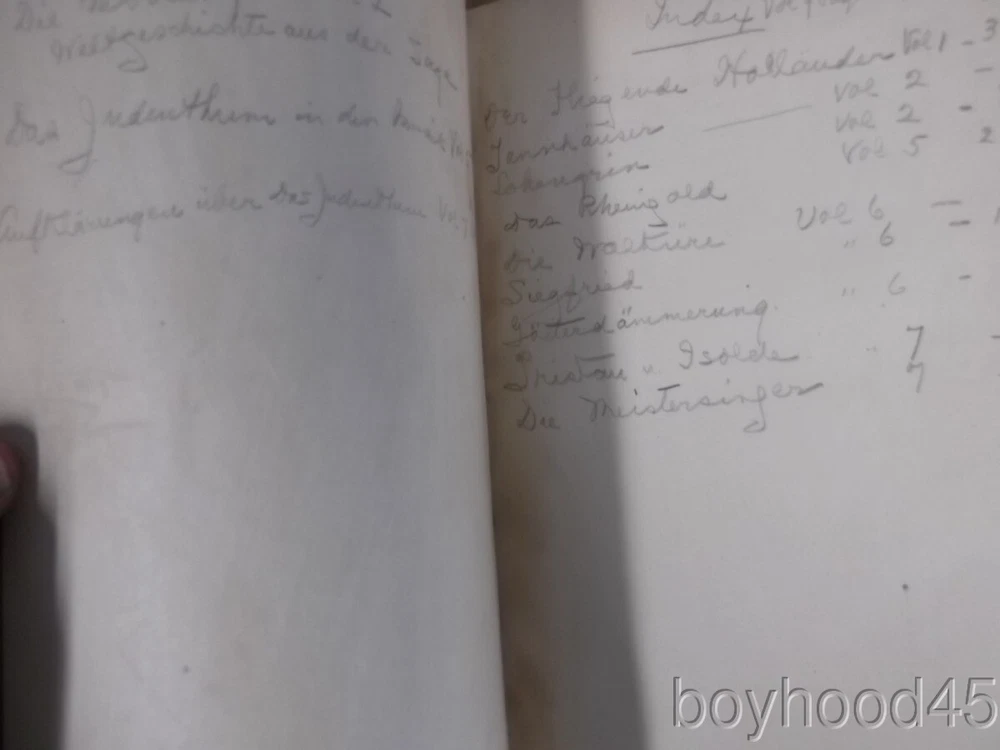 Die
Weltgeschichte aus der Sage
Das Judenthum in der
Aufklärungen über das Judenthum Vol 7
Index Vol
Der Fliegende Holländer Vol 1 - 3
Tannhäuser Vol 2 -
Lohengrin Vol 2 -
Das Rheingold Vol 5 2
Die Walküre Vol 6 -
Siegfried " 6 -
Götterdämmerung " 6 -
Tristan " Isolde " 7 -
Die Meistersinger 7
boyhood45